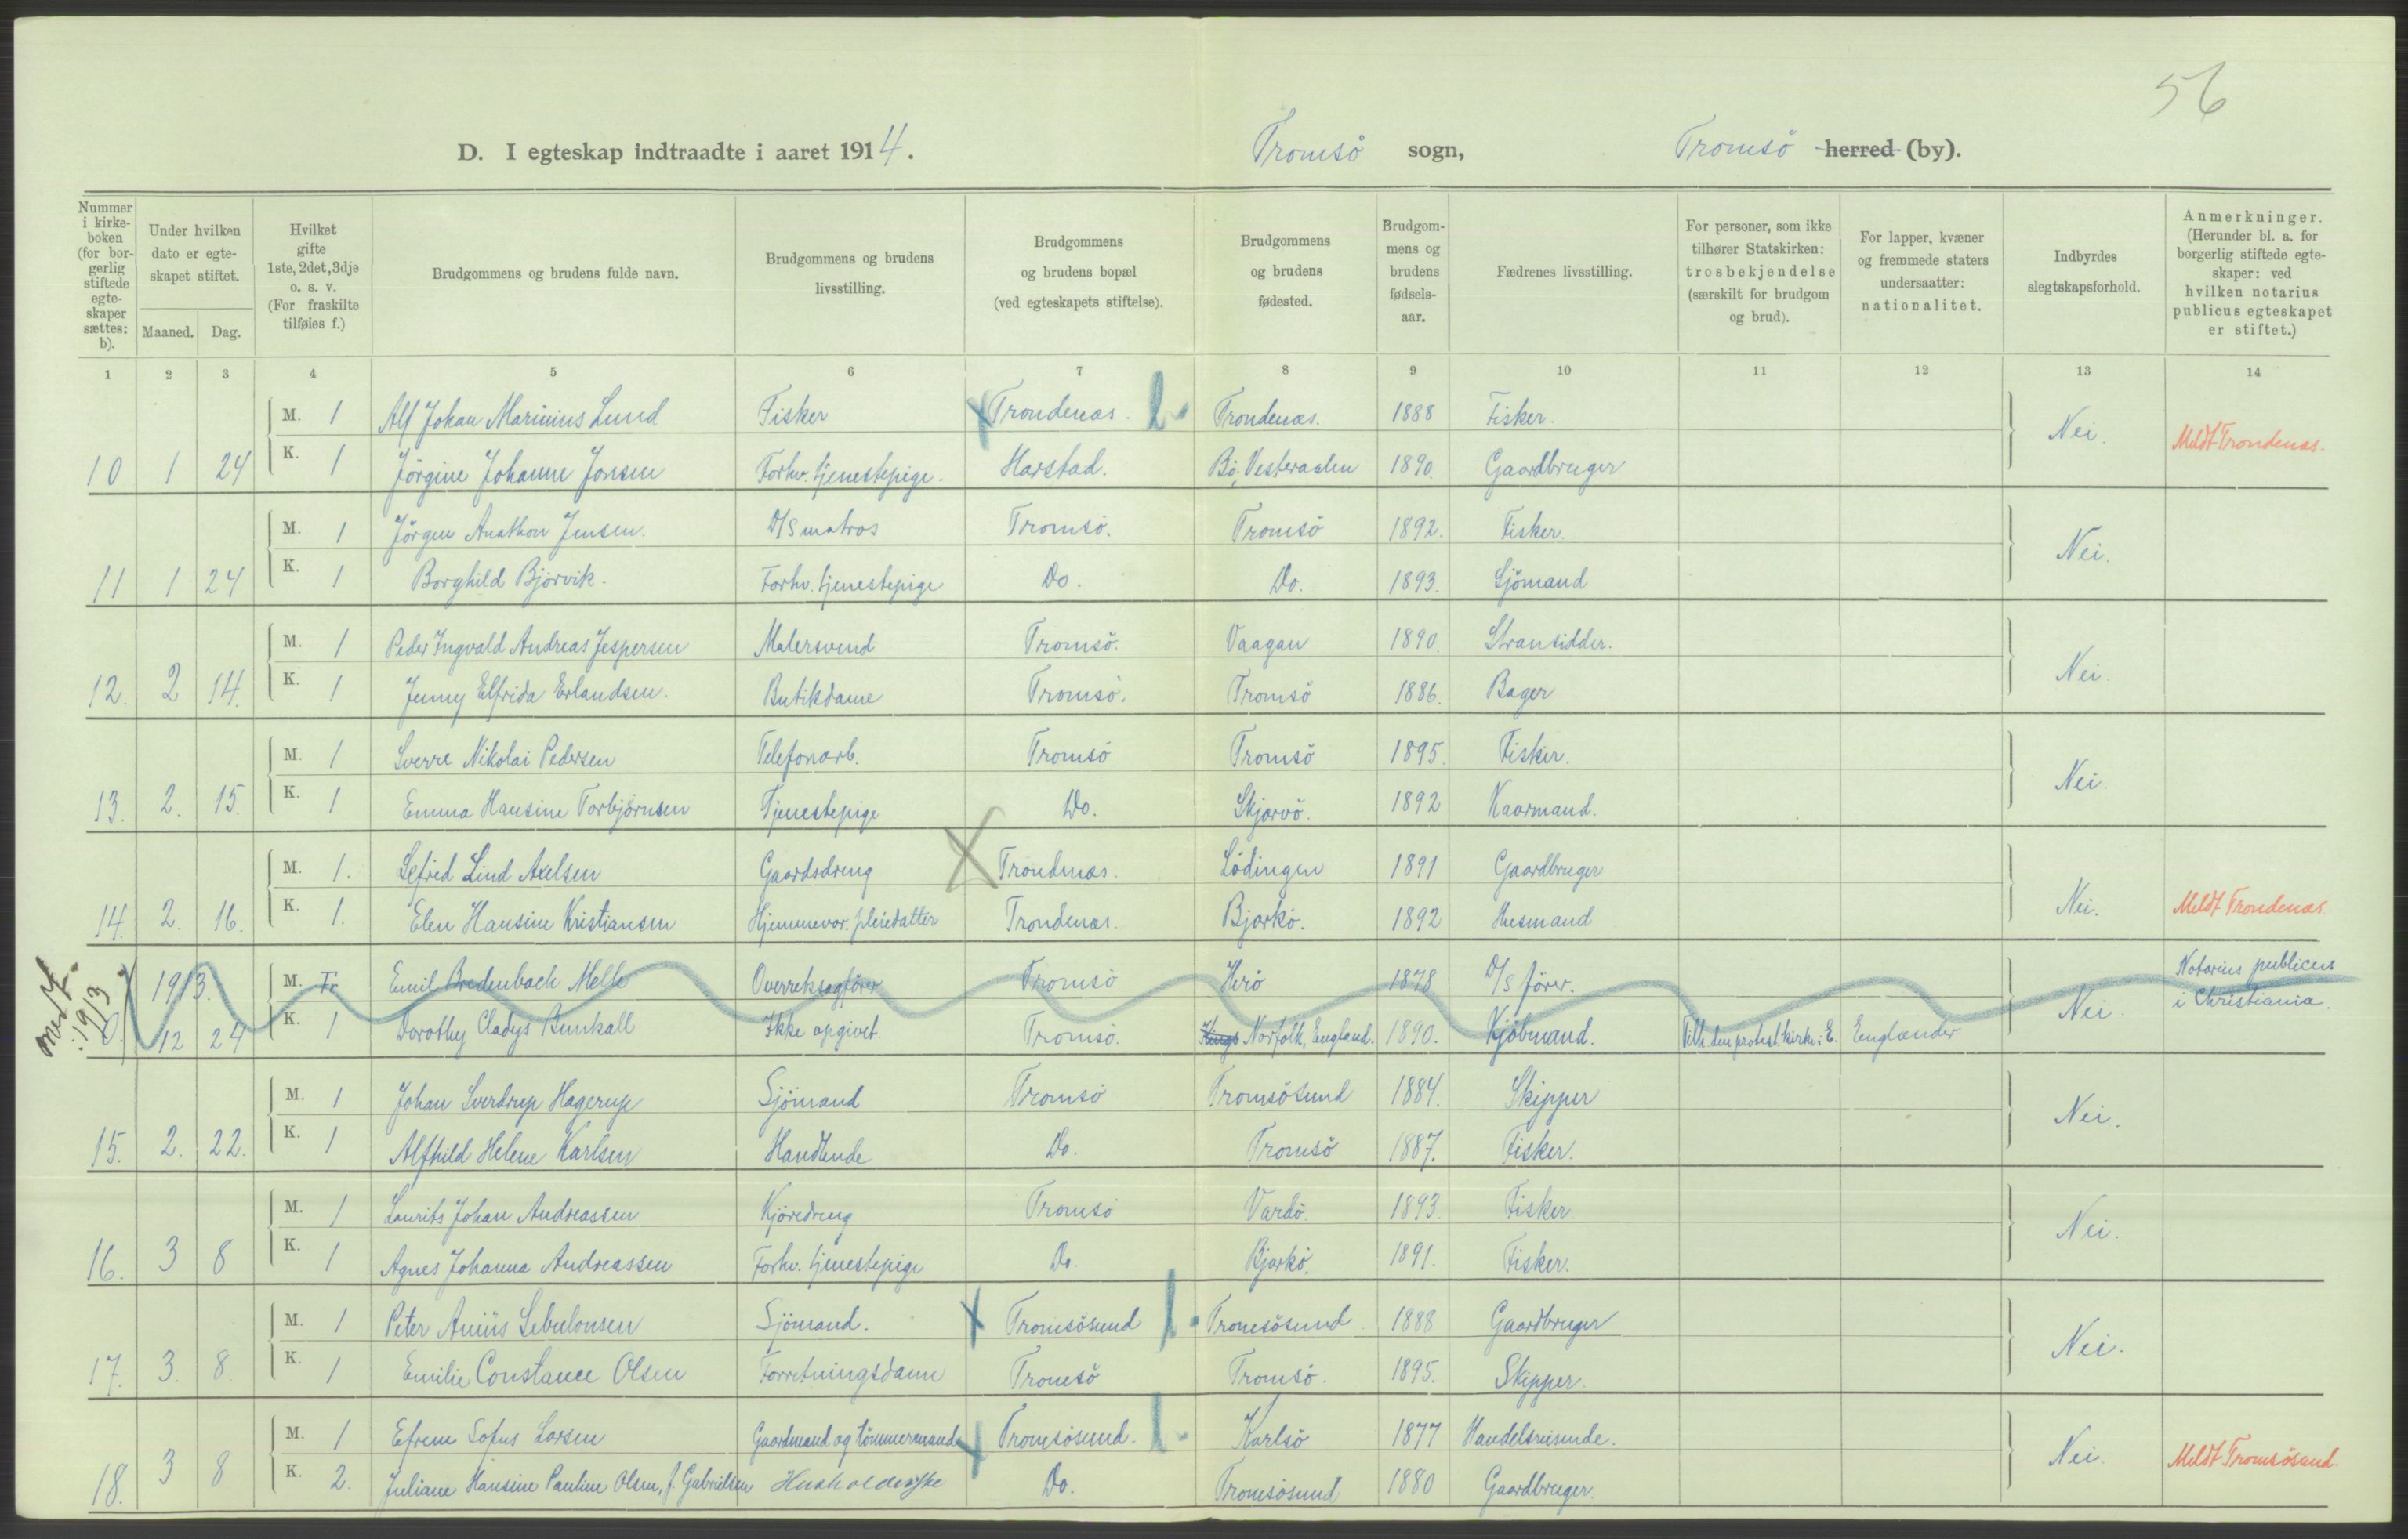 56
D. I egteskap indtraadte i aaret 1914. Tromsø sogn, Tromsö herred (by).
Nummer i kirkeboken (for borgerlig stiftede egteskaper sættes: b). Under hvilken dato er egteskapet stiftet. Maaned. Dag. Hvilket gifte 1ste, 2det, 3dje o. s. v. (For fraskilte tilføies f.) Brudgommens og brudens fulde navn. Brudgommens og brudens livsstilling. Brudgommens og brudens bopæl (ved egteskapets stiftelse). Brudgommens og brudens fødested. Brudgommens og brudens fødselsaar. Fædrenes livsstilling. For personer, som ikke tilhører Statskirken: trosbekjendelse (særskilt for brudgom og brud). For lapper, kvæner og fremmede staters undersaatter: nationalitet. Indbyrdes slegtskapsforhold. Anmerkninger. (Herunder bl. a. for borgerlig stiftede egteskaper: ved hvilken notarius publicus egteskapet er stiftet.)
1 2 3 4 5 6 7 8 9 10 11 12 13 14
M. 1 Alf Johan Marinius Lund Fisker Trondenæs. 2. Trondenæs. 1888 Fisker.
10 1 24 K. 1 Jörgine Johanne Jonsen Forhv. tjenestepige. Harstad. Bö, Vesteraalen 1890. Gaardbruger Nei. Meldt Trondenæs.
M. 1 Jörgen Anathon Jensen. D/S matros Tromsö. Tromsö 1892. Fisker.
11 1 24 K. 1 Borghild Bjørvik. Forhv. tjenestepige Do. Do. 1893. Sjömand Nei.
M. 1 Peder Ingvald Andreas Jespersen Malersvend Tromsö. Vaagan 1890. Stransidder.
12. 2 14. K. 1 Jenny Elfrida Erlandsen. Butikdame Tromsö. Tromsö 1886. Bager Nei.
M. 1 Sverre Nikolai Pedersen Telefonarb. Tromsö Tromsö 1895. Fisker.
13. 2. 15. K. 1 Emma Hansine Torbjørnsen Tjenestepige Do. Skjærvö. 1892 Kaarmand. Nei.
M. 1. Sefred Lind Axelsen Gaardsdreng Trondenæs. Lödingen 1891 Gaardbruger
14. 2. 16. K. 1. Elen Hansine Kristiansen Hjemmevær. pleiedatter Trondenæs. Bjarkö. 1892 Husmand Nei. Meldt Trondenæs.
1913. M. Fr Emil Bredenbach Melle Overretssagfører Tromsö Herö 1878 D/S förer. Notarius publicus
12 24 K. 1 Dorothy Cladys Bunkall Ikke opgivet. Tromsö. Kings Norfolk, England. 1890. Kjöbmand. Tilh. den protest. kirke i E. Englænder Nei. i Christiania.
M. 1 Johan Sverdrup Hagerup Sjömand Tromsö Tromsösund 1884. Skipper
15. 2. 22. K. 1 Alfhild Helene Karlsen Handlende Do. Tromsö 1887. Fisker. Nei.
M. 1 Laurits Johan Andreassen Kjöredreng Tromsö Vardö. 1893. Fisker
16. 3 8 K. 1 Agnes Johanna Andreassen Forhv. tjenestepige Do. Bjarkö. 1891. Fisker. Nei.
M. 1 Peter Sebulonsen Sjömand. Tromsösund 1. Tromsösund. 1888 Gaardbruger
17. 3. 8. K. 1 Emilie Constance Olsen Forretningsdame Tromsö Tromsö. 1895. Skipper. Nei.
M. 1 Efrem Sofus Larsen Gaardmand og tömmermand Tromsösund. 1. Karlsö 1877 Handelsreisende.
18. 3 8 K. 2. Juliane Hansine Pauline Olsen, f. Gabrielsen Husholderske Do. Tromsösund 1880 Gaardbruger. Nei. Meldt Tromsösund.